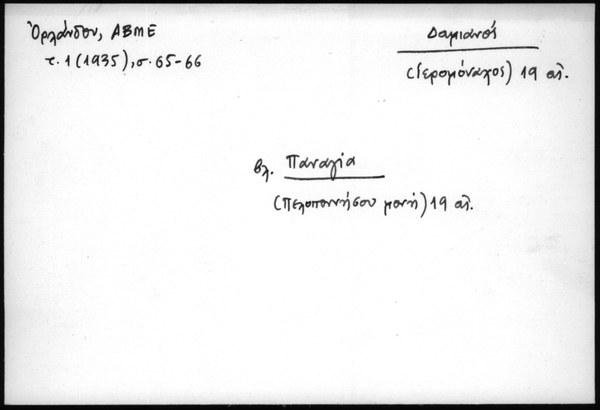 Ὀρλάνδου, ΑΒΜΕ
τ. 1 (1935), σ. 65-66
Δαμιανός
(Ἱερομόναχος) 19 αἰ.
βλ. Παναγία
(Πελοποννήσου μονή) 19 αἰ.